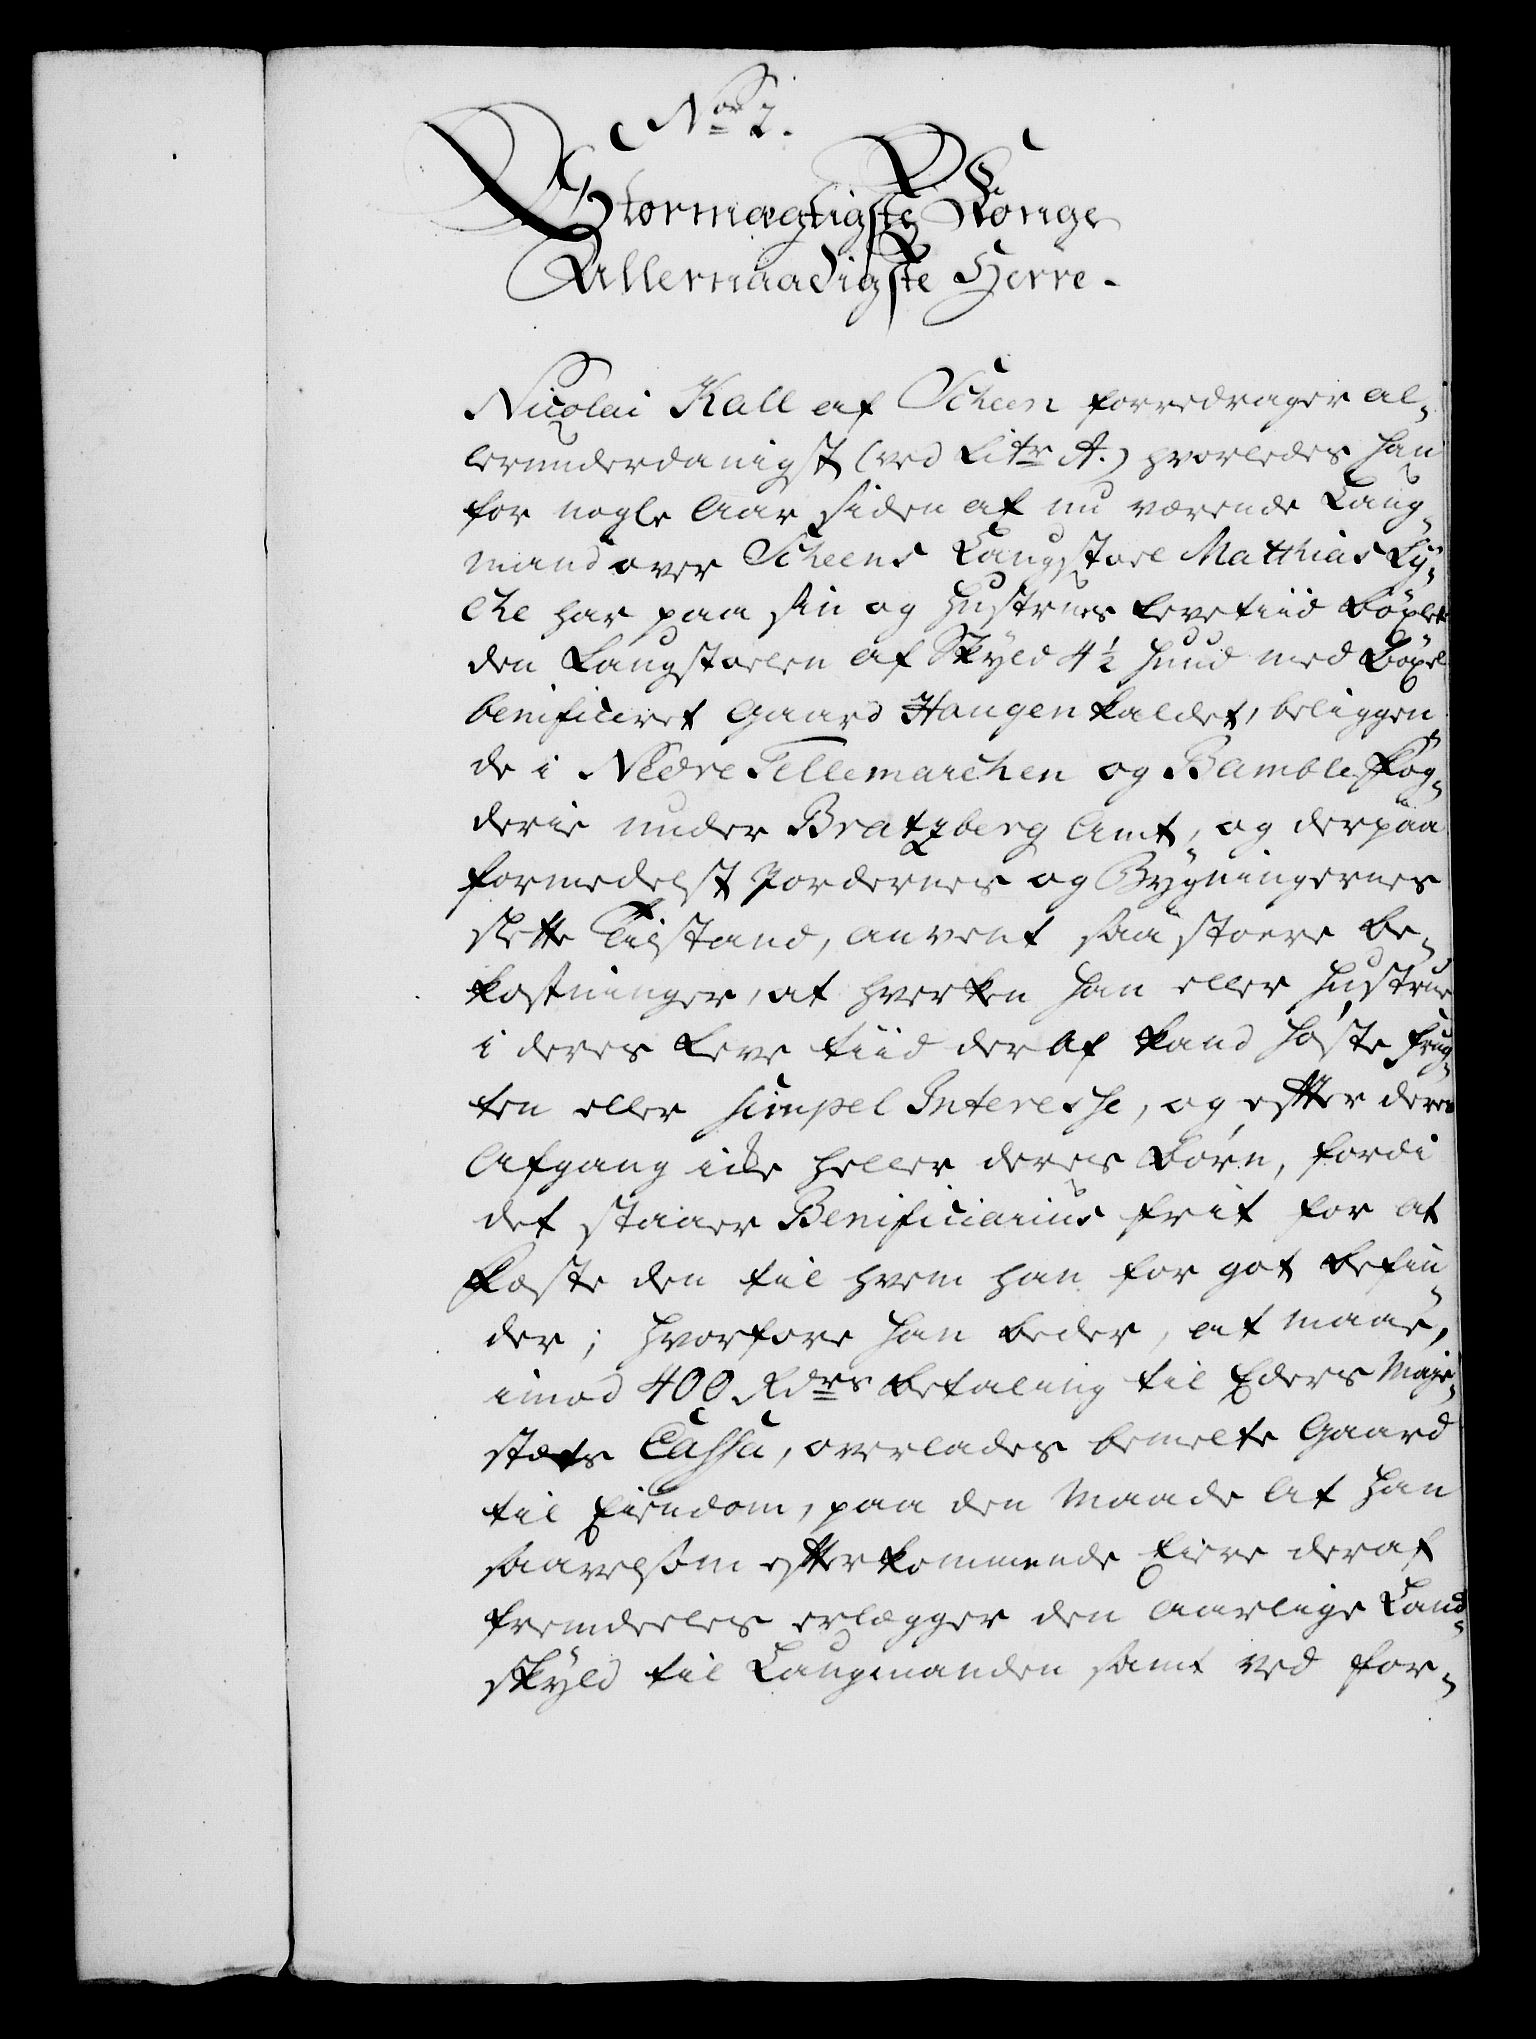 No 2.
Stormægtigste Konge
Allernaadigste Herre.
Nicolai Kall af Scheen forredrager al-
lerunderdanigst (ved Litr A.) hvorledes han
for nogle Aar siden af nu værende Laug-
mand over Scheens Laugstoel Matthias Ly-
che har paa sin og Hustrues Levetiid böxlet
den Laugstoelen af Skyld 4½ Huud med Böxel
benificeret Gaard Haugen kaldet, beliggen-
de i Nedre Tellemarchen og Bamble Fog-
derie under Bratzberg Amt, og derpaa
formedelst Jordernes og Bygningernes
slette Tilstand, anvent saa stoere be-
kostninger, at hverken han eller Hustrue
i deres Leve tiid deraf kand høste frug-
ten eller simpel Interesse, og efter deres
Afgang icke heller deres Børn, fordi
det staaer Benificiarius frit for at
fæste den til hvem han for got befin-
der; hvorfore han beder, at maae,
imod 400 Rdrs betaling til Eders Maje-
stæts Cassa, overlades bemelte Gaard
til Eiendom, paa den Maade at han
saavelsom efterkommende Eiere deraf
fremdeeles erlægger den aarlige Land-
skyld til Laugmanden samt ved for-